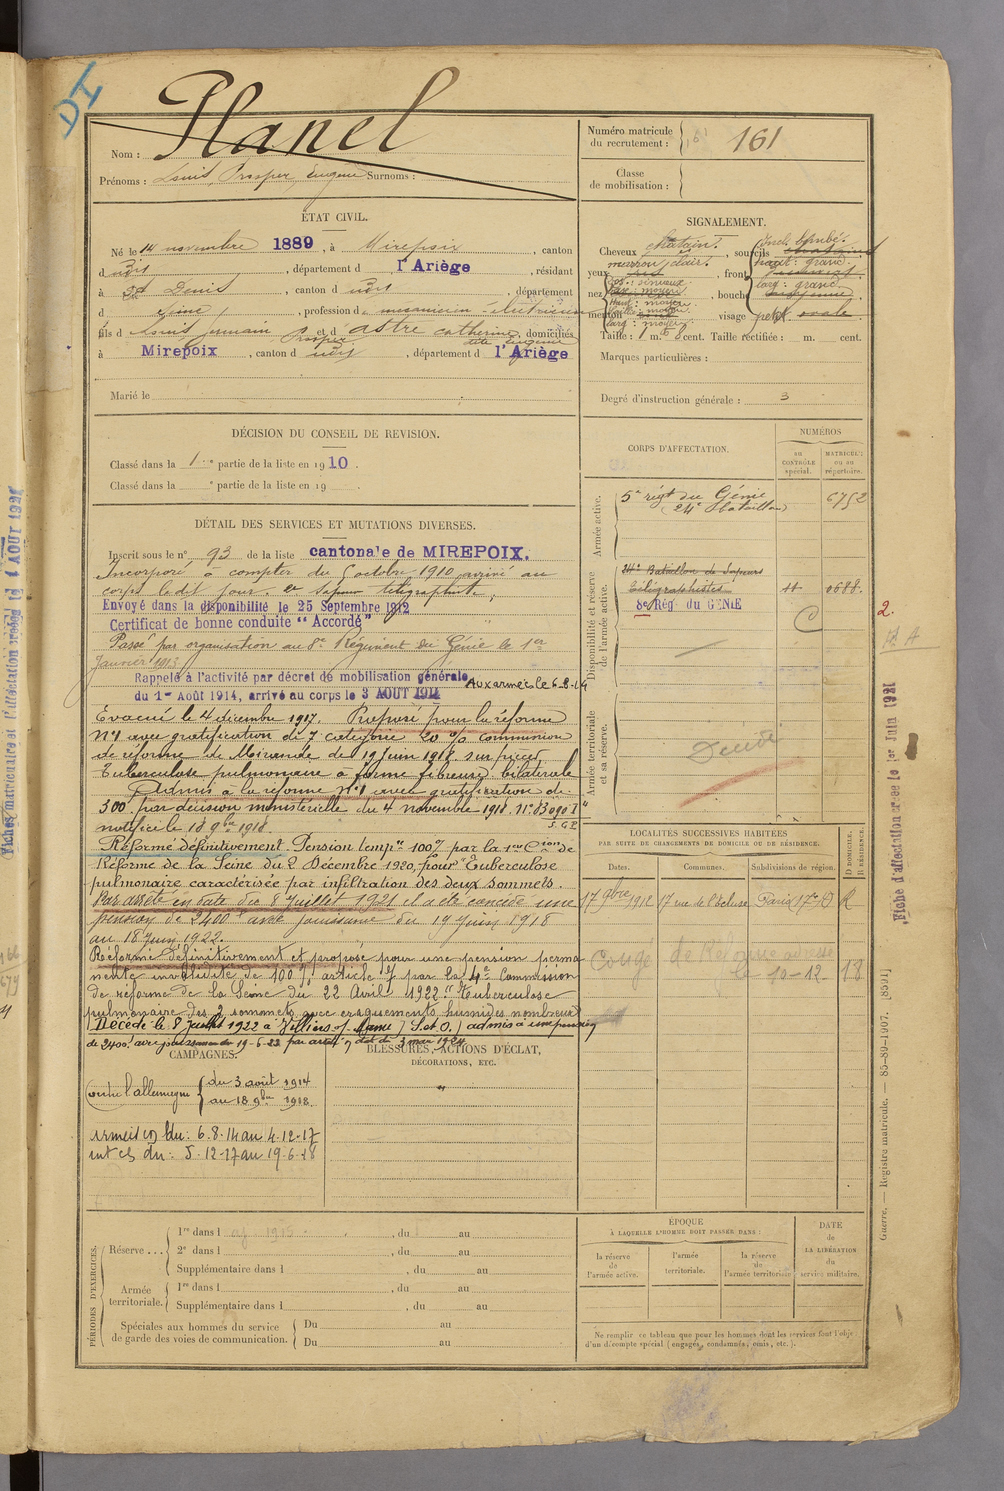 DI
Nom : Planel
Prénoms : Louis, Prosper, Eugène Surnoms :
Numéro matricule du recrutement : 161
Classe de mobilisation :
ÉTAT CIVIL.
Né le 14 novembre 1889, à Mirepoix, canton
dudit, département d l'Ariège, résidant
à St Denis, canton d udit, département
d Seine, profession de mécanicien-électricien
fils d Louis Germain Prosper et d' Astre Catherine Eugénie, domiciliés
à Mirepoix, canton d udit, département d l'Ariège
Marié le
SIGNALEMENT.
Cheveux châtain. , sourcils
yeux marron clair. , front
Incl. bombé.
haut : grand
larg : grand
nez , bouche
dos : sinueux
base : moyen
haut : moyen
larg : moyen
menton , visage ovale
Taille : 1 m. cent. Taille rectifiée : m. cent.
Marques particulières :
Degré d'instruction générale : 3
DÉCISION DU CONSEIL DE REVISION.
Classé dans la 1re partie de la liste en 1910.
Classé dans la e partie de la liste en 19 .
DÉTAIL DES SERVICES ET MUTATIONS DIVERSES.
Inscrit sous le n° 93 de la liste cantonale de MIREPOIX.
Incorporé à compter du octobre 1910 arrivé au
corps ledit jour, et sapeur télégraphiste,
Envoyé dans la disponibilité le 25 Septembre 1912
Certificat de bonne conduite "Accordé"
Passé par organisation au 8e Régiment du Génie le 1er
Janvier 1913
Rappelé à l'activité par décret de mobilisation générale
du 1er Août 1914, arrivé au corps le 3 AOUT 1914 Aux armées le 6-8-14
Evacué le 4 décembre 1917. Proposé pour la réforme
N°1 avec gratification de 7 catégorie 20 % commission
de réforme de Mirande du 19 Juin 1918 sur pièces
Tuberculose pulmonaire à forme fibreuse bilatérale
Admis à la réforme N°1 avec gratification de
300 f par décision ministérielle du 4 novembre 1918 N° 13090 I
notifiée le 18 9bre 1918. S.G.P.
Réformé définitivement. Pension tempre 100% par la 1re Cion de
Réforme de la Seine du 2 Décembre 1920, pour "Tuberculose
pulmonaire caractérisée par infiltration des deux sommets.
Par arrêté en date du 8 Juillet 1921 il a été concédé une
pension de 2400f avec jouissance du 19 Juin 1918
au 18 Juin 1922.
Réformé définitivement et proposé pour une pension perma
nente invalidité de 100 % article par la 4e Commission
de réforme de la Seine du 22 Avril 1922 "Tuberculose
pulmonaire des 2 sommets avec craquements humides nombreux
Décédé le 8 Juillet 1922 à Villiers s/ Marne (S. et O.) admis à une pension
de 2400, avec jouissance du 19-6-22 par arrêté du 3 mai 1924
CORPS D'AFFECTATION.
NUMÉROS
au CONTRÔLE spécial.
MATRICULE ou au répertoire.
Armée active.
5e régt du Génie
(24e bataillon)
6752
Disponibilité et réserve de l'armée active.
24e Bataillon de Sapeurs
Télégraphistes
8e Rég. du GENIE
C
Armée territoriale et sa réserve.
Décédé
2.
LOCALITÉS SUCCESSIVES HABITÉES
PAR SUITE DE CHANGEMENTS DE DOMICILE OU DE RÉSIDENCE.
Dates. Communes. Subdivisions de région. D DOMICILE. R RÉSIDENCE.
17 9bre 1912 17 rue de l'écluse Paris 17e R
Congé de Réforme
10-12- 18
CAMPAGNES.
Contre l'allemagne du 3 août 1914
au 18 9bre 1918.
Armées du : 6.8.14 au 4.12.17
int du : 5.12.17 au 19.6.18
BLESSURES, ACTIONS D'ÉCLAT,
DÉCORATIONS, ETC.
"
PÉRIODES D'EXERCICES.
Réserve . . .
1re dans l , du au
2e dans l , du au
Supplémentaire dans l , du au
Armée territoriale.
1re dans l , du au
Supplémentaire dans l , du au
Spéciales aux hommes du service de garde des voies de communication.
Du au
Du au
ÉPOQUE
À LAQUELLE L'HOMME DOIT PASSER DANS :
la réserve de l'armée active.
l'armée territoriale.
la réserve de l'armée territoriale
DATE de LA LIBÉRATION du service militaire.
Ne remplir ce tableau que pour les hommes dont les services font l'objet
d'un décompte spécial (engagés, condamnés, omis, etc.).
Fiche d'affectation créée le 1er Juin 1921
Guerre. — Registre matricule. — 85-89-1907. [8591]